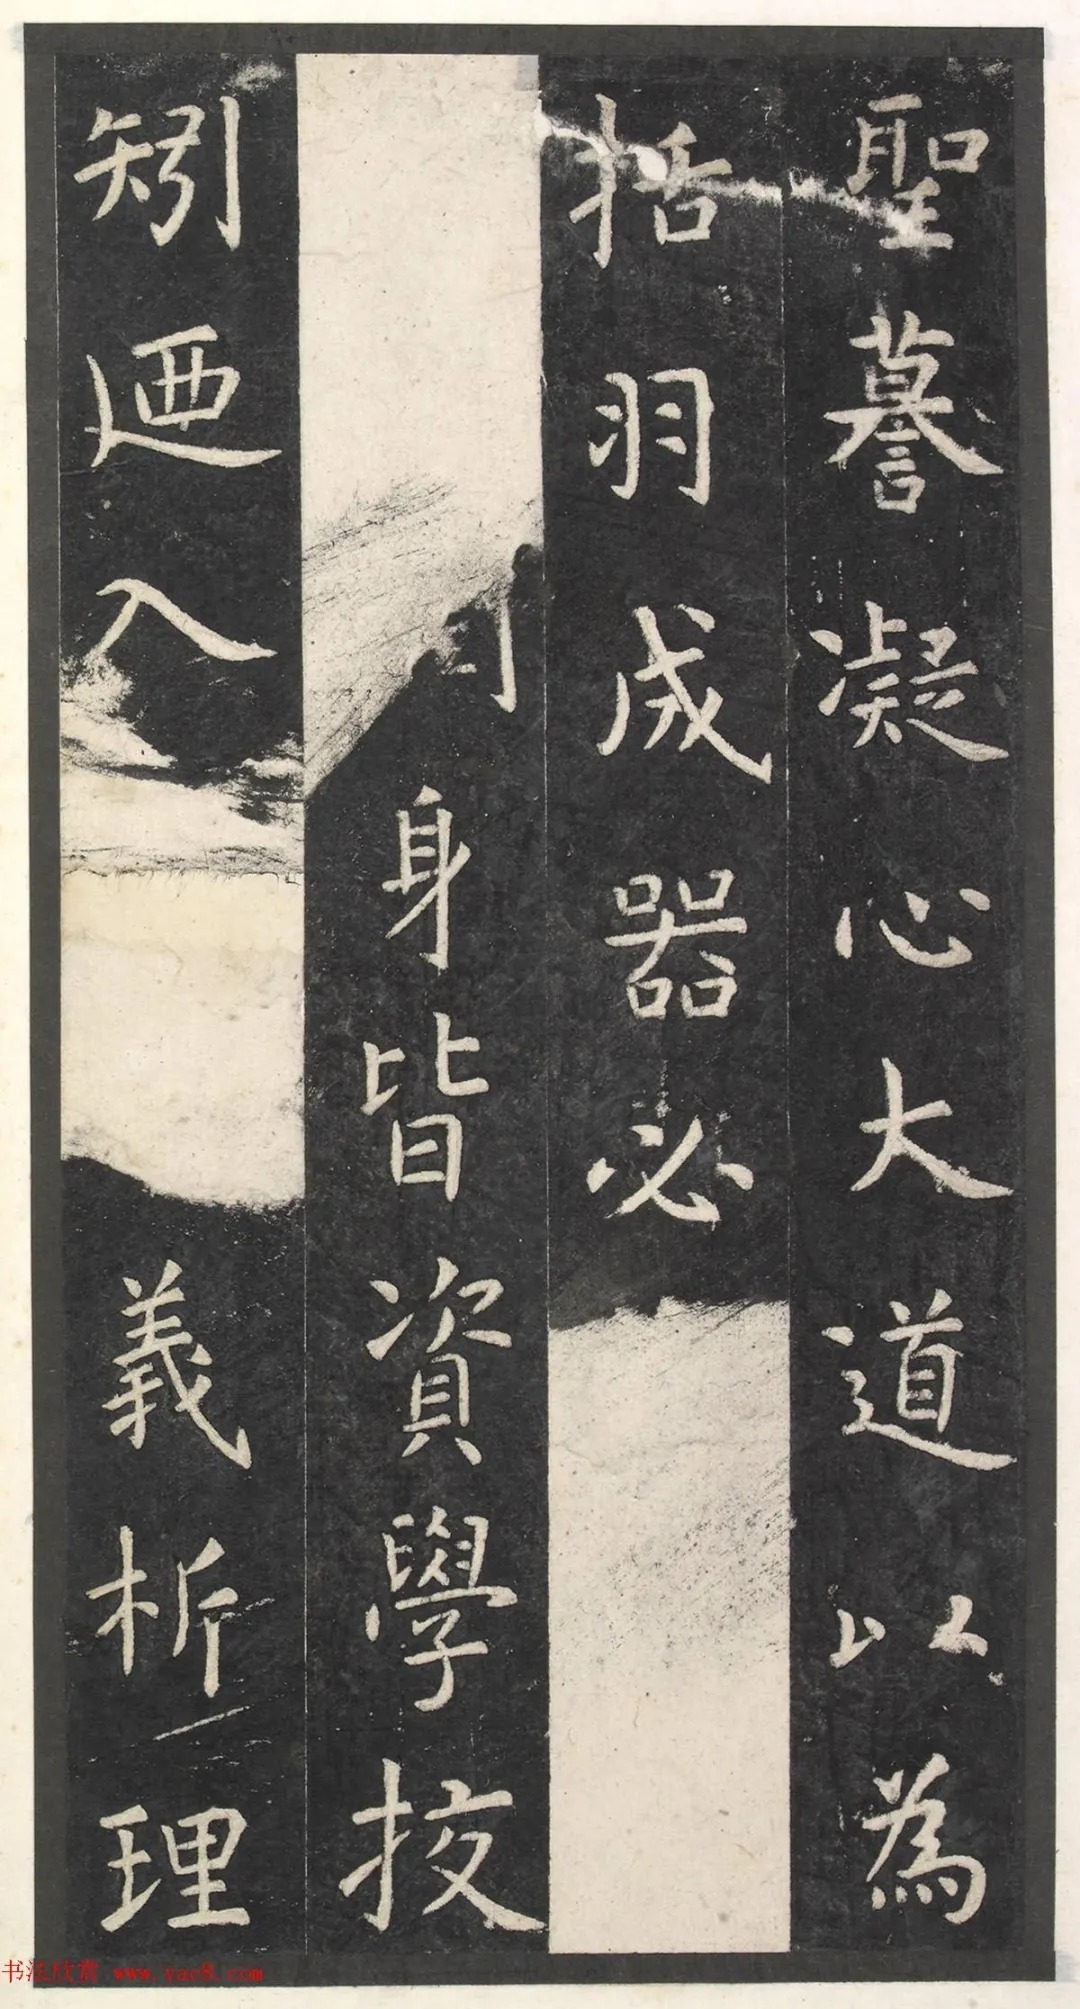 聖謩凝心大道以為
括羽成器必
身皆資學技
矧迺入
義析理
书法欣赏 www.yac8.com